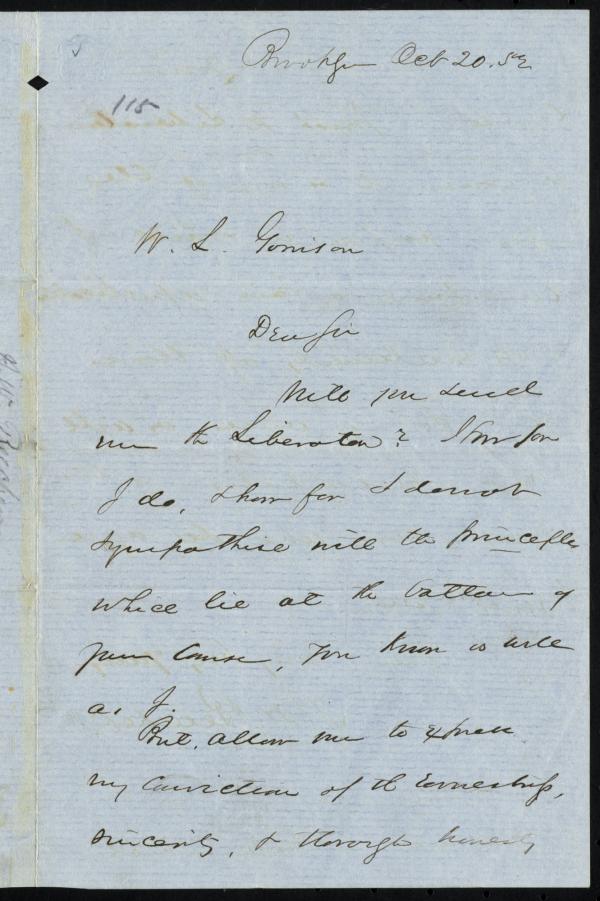 Brooklyn Oct 20. 52
115
W. L. Garrison
Dear Sir
Will you send
me the Liberator? How far
I do, & how far I do not
sympathise with the principles
which lie at the bottom of
your cause, you know as well
as I.
But, allow me to express
my conviction of the earnestness,
sincerity, & thorough honesty